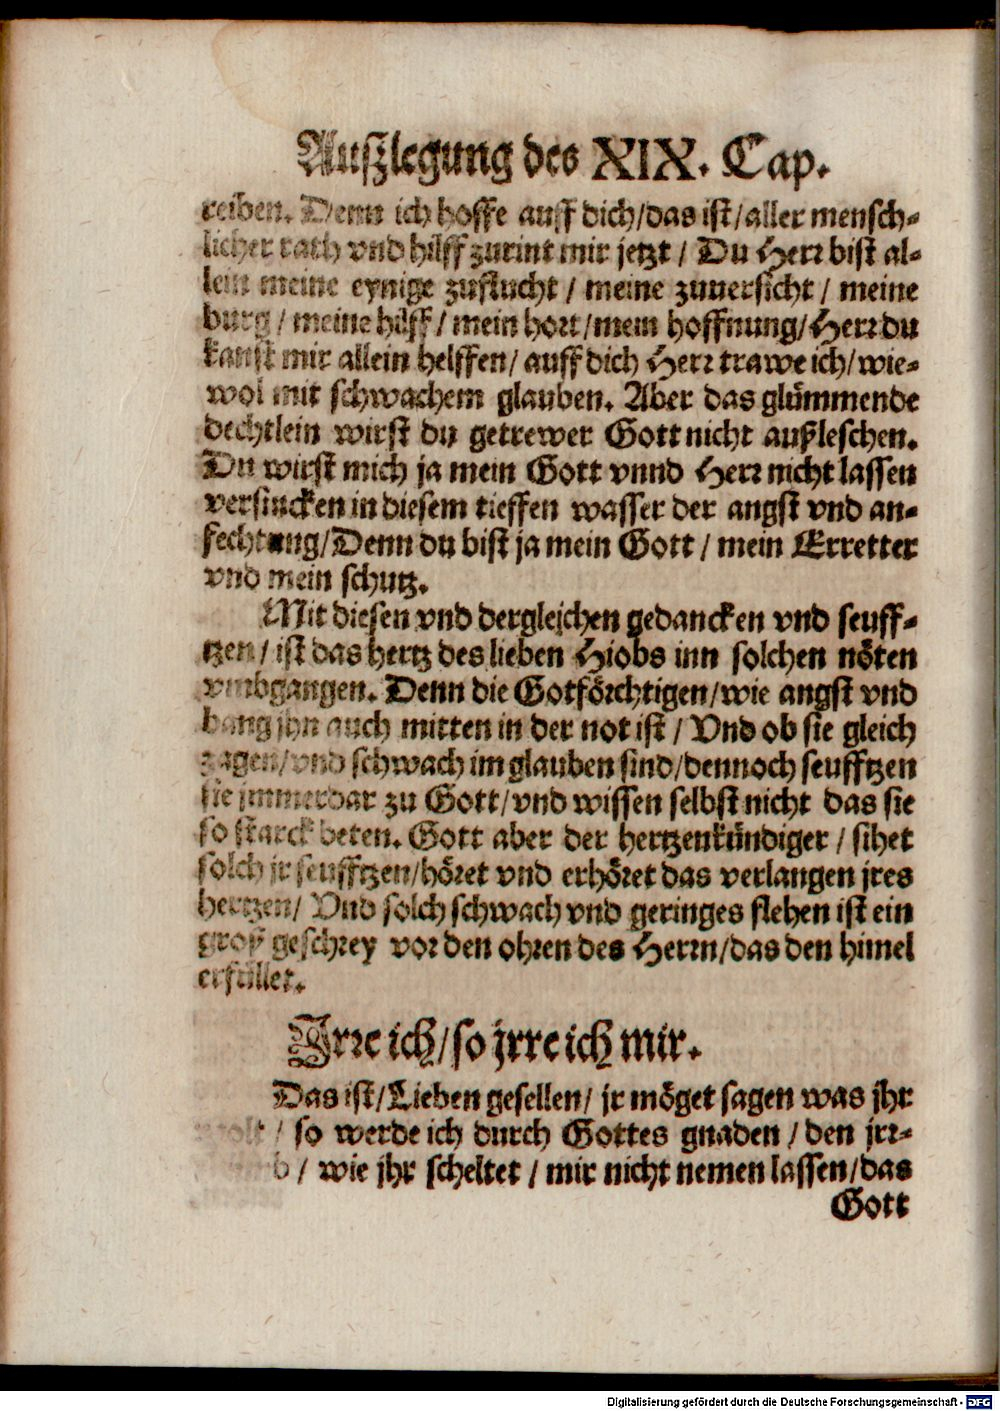 Auſzlegung des XIX. Cap.
reiben. Denn ich hoffe auff dich/das iſt/aller menſch-
licher rath vnd hilff zurint mir jetzt / Du Herr biſt al-
lein meine eynige zuflucht / meine zuuerſicht / meine
burg / meine hilff / mein hort/mein hoffnung/Herr du
kanſt mir allein helffen/ auff dich Herr trawe ich/wie-
wol mit ſchwachem glauben. Aber das glümmende
dechtlein wirſt du getrewer Gott nicht außleſchen.
Du wirſt mich ja mein Gott vnnd Herr nicht laſſen
verſincken in dieſem tieffen waſſer der angſt vnd an-
fechtung/Denn du biſt ja mein Gott / mein Erretter
vnd mein ſchutz.
Mit dieſen vnd dergleichen gedancken vnd ſeuff-
tzen / iſt das hertz des lieben Hiobs inn ſolchen nöten
vmbgangen. Denn die Gotförchtigen/wie angſt vnd
bang jhn auch mitten in der not iſt / Vnd ob ſie gleich
zagen/vnd ſchwach im glauben ſind/dennoch ſeufftzen
ſie jmmerdar zu Gott/vnd wiſſen ſelbſt nicht das ſie
ſo ſtarck beten. Gott aber der hertzenkündiger / ſihet
ſolch jr ſeufftzen/höret vnd erhöret das verlangen jres
hertzen/ Vnd ſolch ſchwach vnd geringes flehen iſt ein
groß geſchrey vor den ohren des Herrn/das den himel
erfüllet.
Irre ich/ſo jrre ich mir.
Das iſt/Lieben geſellen/ jr möget ſagen was jhr
wolt / ſo werde ich durch Gottes gnaden / den jrr-
/ wie jhr ſcheltet / mir nicht nemen laſſen/das
Gott
Digitalisierung gefördert durch die Deutsche Forschungsgemeinschaft - DFG